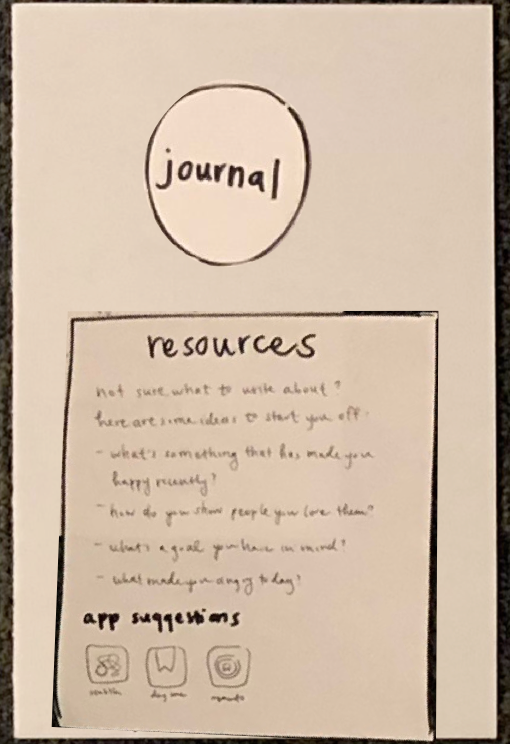 journal
resources
not sure what to write about?
here are some ideas to start you off:
- what's something that has made you
happy recently?
- how do you show people you love them?
- what's a goal you have in mind?
- what made you angry today?
app suggestions
day one